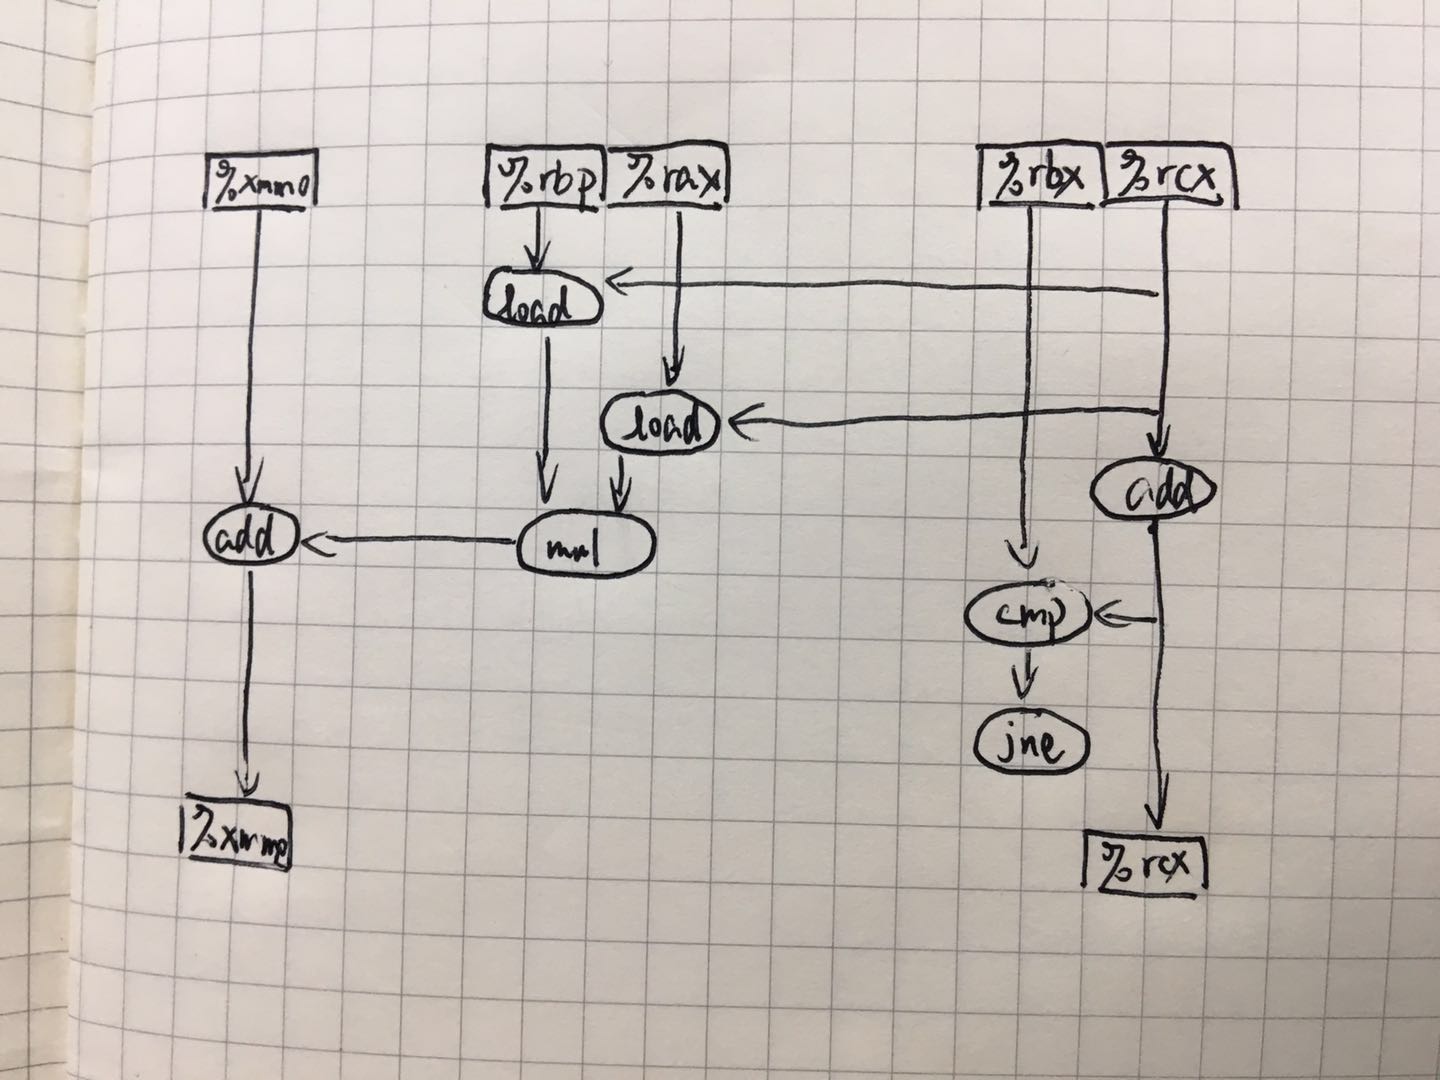 %xmm0 %rbp %rax %rbx %rcx
load
load
add
add mul
cmp
jne
%xmm0
%rcx